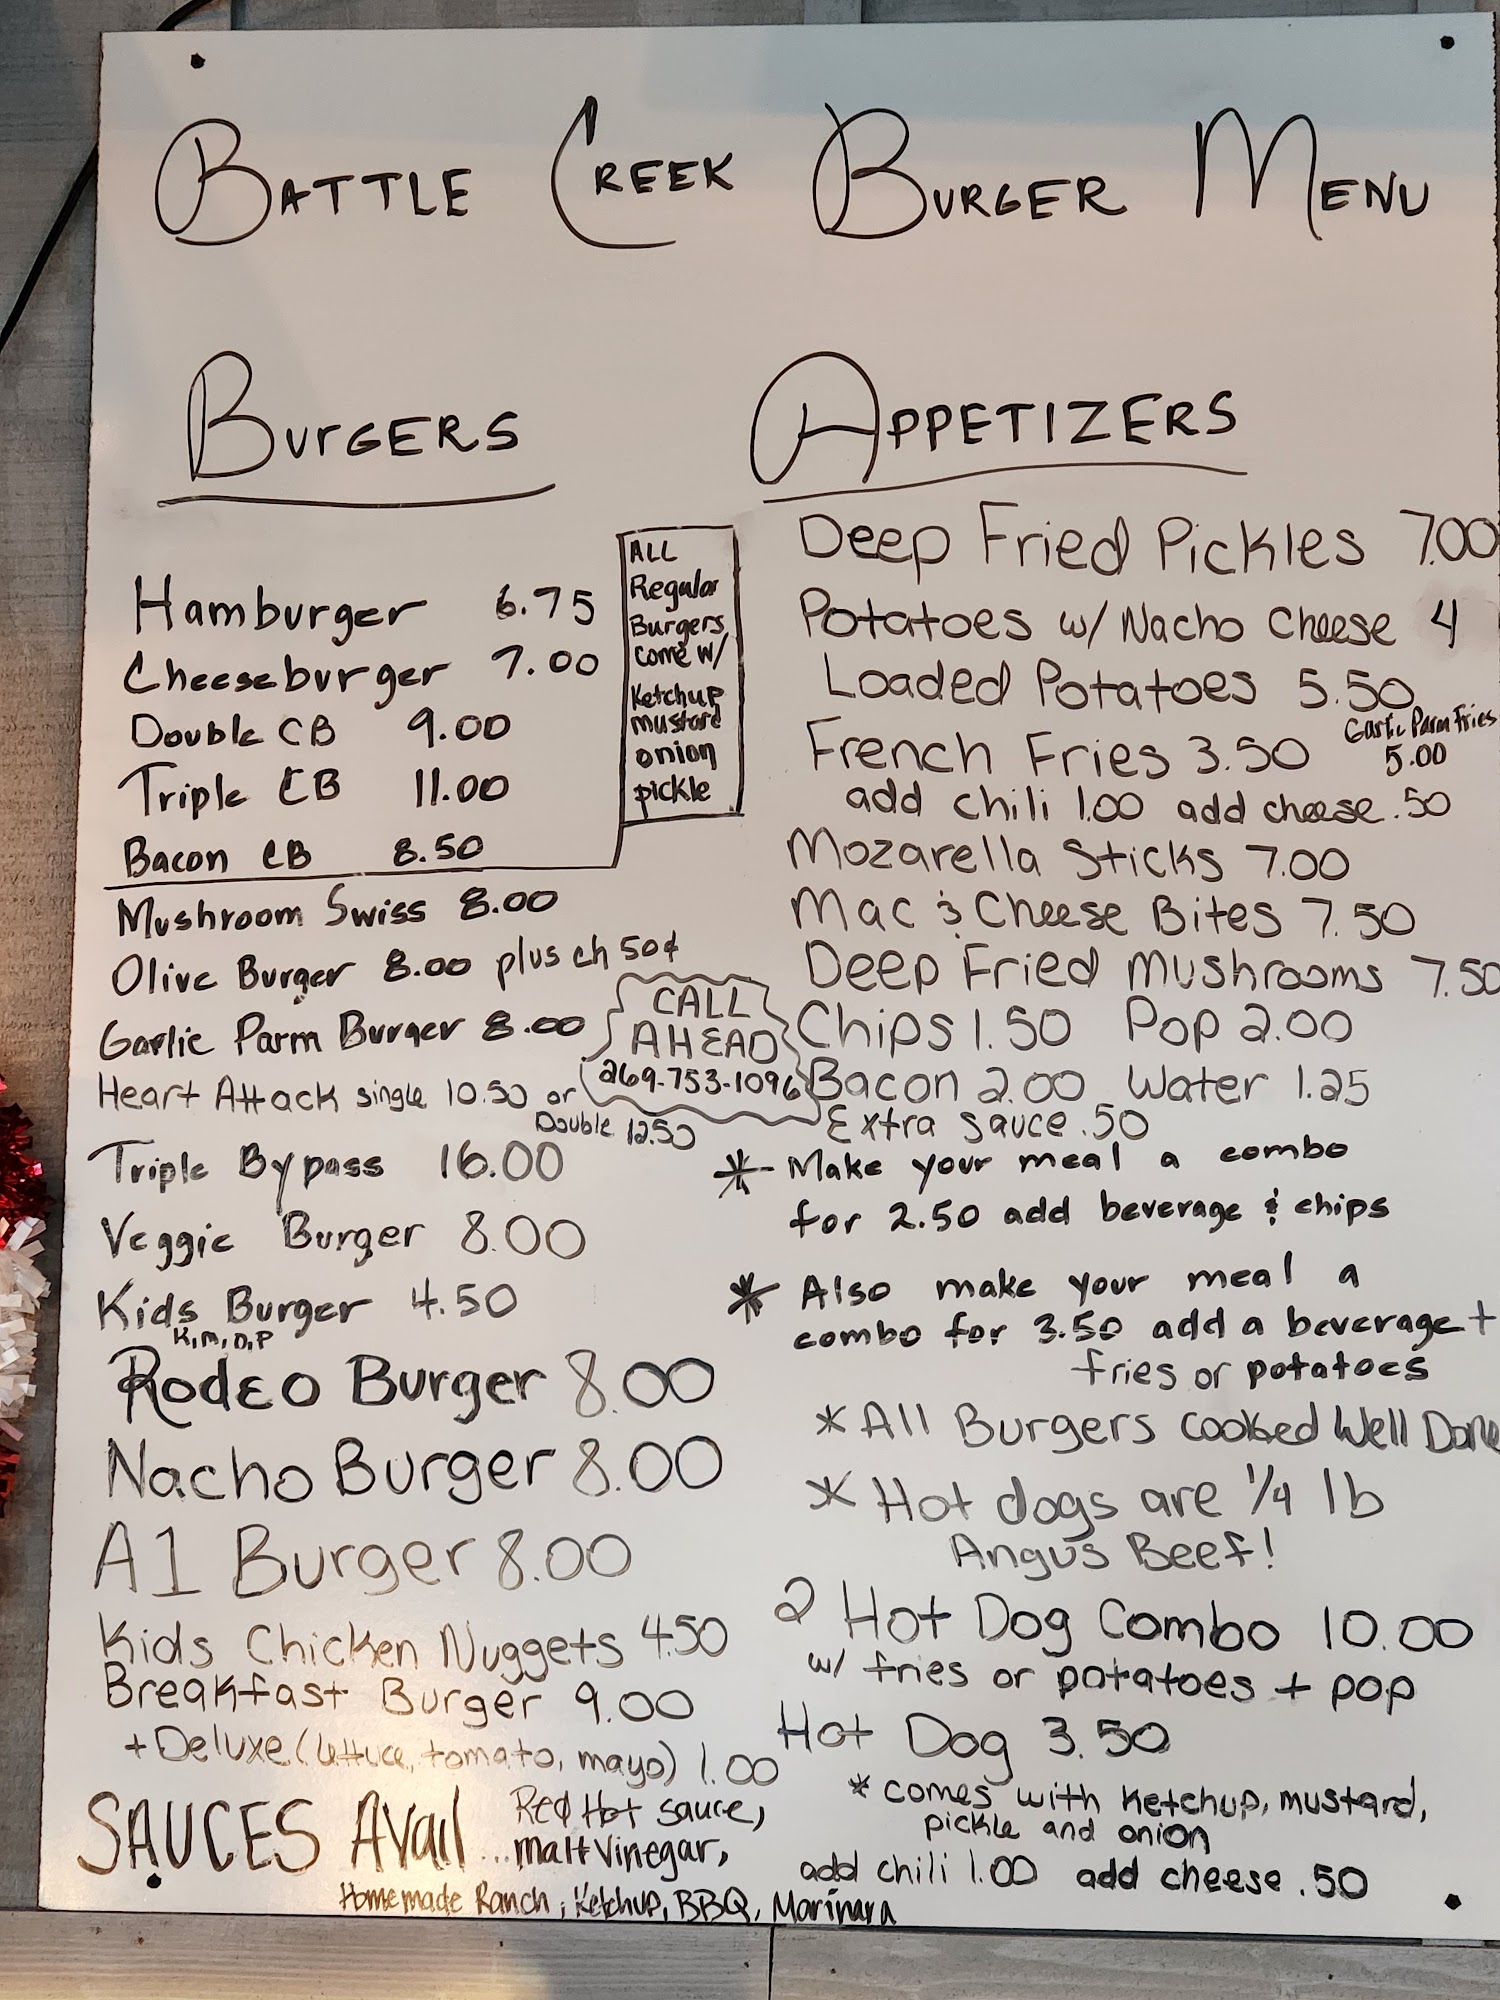 BATTLE CREEK BURGER MENU
BURGERS
Hamburger 6.75
Cheeseburger 7.00
Double CB 9.00
Triple CB 11.00
Bacon CB 8.50
ALL
Regular
Burgers
come w/
Ketchup
mustard
onion
pickle
Mushroom Swiss 8.00
Olive Burger 8.00 plus ch 50¢
Garlic Parm Burger 8.00
Heart Attack single 10.50 or
Double 12.50
CALL
AHEAD
269-753-1096
Triple Bypass 16.00
Veggie Burger 8.00
Kids Burger 4.50
K,M,O,P
Rodeo Burger 8.00
Nacho Burger 8.00
A1 Burger 8.00
Kids Chicken Nuggets 4.50
Breakfast Burger 9.00
+ Deluxe (lettuce, tomato, mayo) 1.00
SAUCES Avail ... Red Hot sauce,
malt vinegar,
Homemade Ranch, Ketchup, BBQ, Marinara
APPETIZERS
Deep Fried Pickles 7.00
Potatoes w/ Nacho Cheese 4
Loaded Potatoes 5.50
French Fries 3.50
Garlic Parm Fries
5.00
add chili 1.00 add cheese .50
Mozarella Sticks 7.00
Mac & Cheese Bites 7.50
Deep Fried Mushrooms 7.50
Chips 1.50 Pop 2.00
Bacon 2.00 Water 1.25
Extra sauce .50
* Make your meal a combo
for 2.50 add beverage & chips
* Also make your meal a
combo for 3.50 add a beverage +
fries or potatoes
* All Burgers cooked Well Done
* Hot dogs are 1/4 lb
Angus Beef!
2 Hot Dog Combo 10.00
w/ fries or potatoes + pop
Hot Dog 3.50
* comes with Ketchup, mustard,
pickle and onion
add chili 1.00 add cheese .50